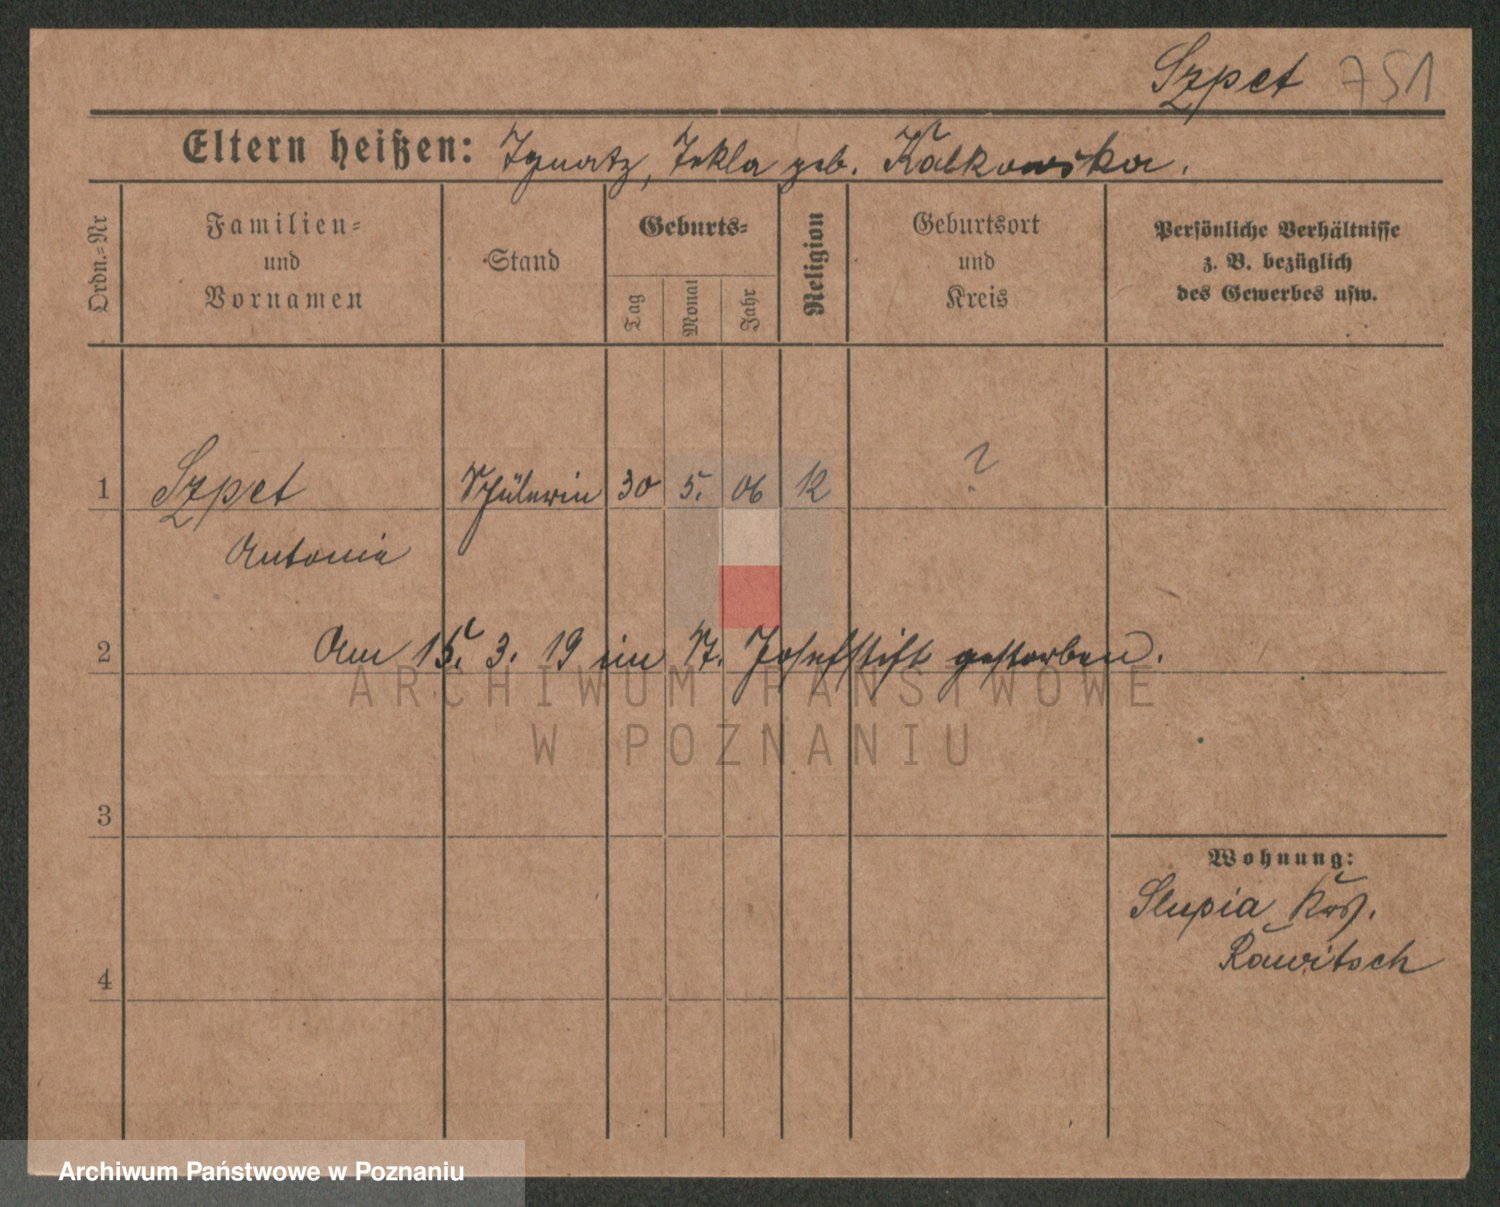 Szpet 751
Eltern heißen: Ignatz, Tekla geb. Kalkowska.
Ordn.-Nr
Familien-
und
Vornamen
Stand
Geburts-
Tag
Monat
Jahr
Religion
Geburtsort
und
Kreis
Persönliche Verhältnisse
z. B. bezüglich
des Gewerbes usw.
1 Szpet Schülerin 30 5. 06 K ?
Antonie
2 Am 15. 3. 19 im St. Josefstift gestorben.
ARCHIWUM PAŃSTWOWE
W POZNANIU
3
Wohnung:
Slupia Krs.
Rawitsch
4
Archiwum Państwowe w Poznaniu